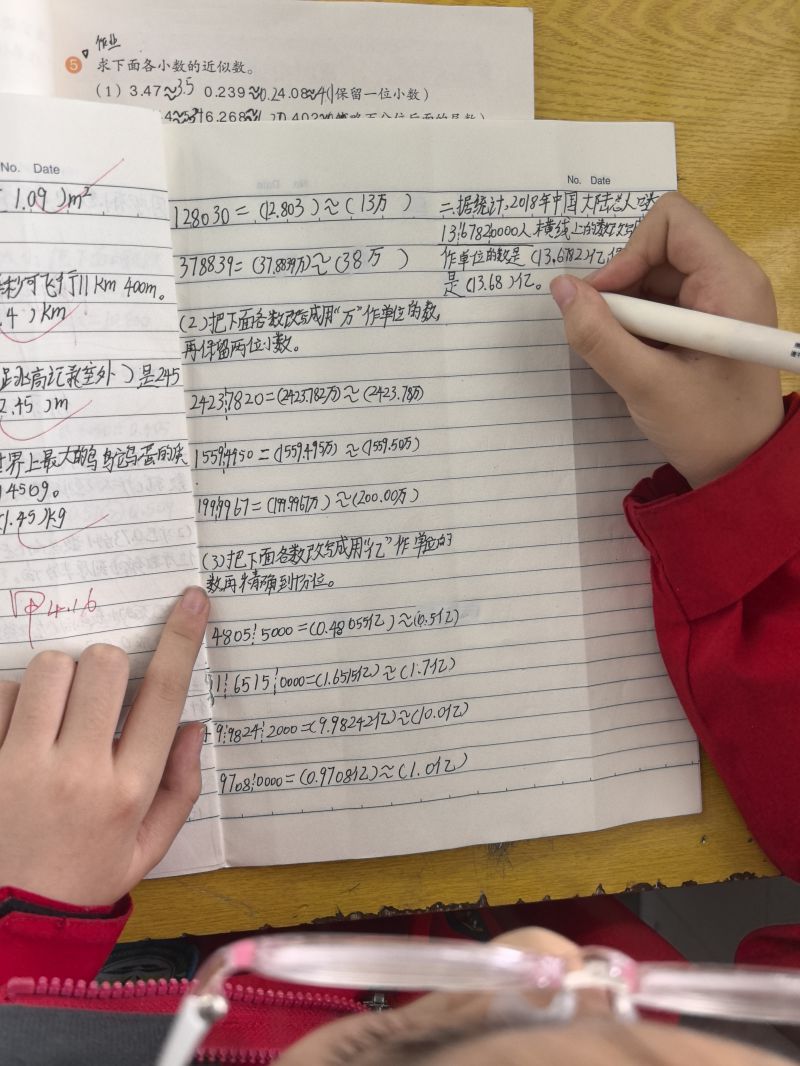 作业
5 求下面各小数的近似数。
(1) 3.47≈3.5 0.239≈0.2 4.08≈4.1(保留一位小数)
No. Date
1.09 )m²
可飞行11Km 400m。
.4 ) Km
)是245
2.45 )m
世界上最大的鸟
1450g。
1.45)kg
甲 4.16
No. Date
128030=(12.803 )≈(13万 )
378839=(37.8839万)≈(38万 )
(2)把下面各数改写成用“万”作单位的数,
再保留两位小数。
24237820=(2423.782万)≈(2423.78万)
15594950=(1559.495万)≈(1559.50万)
1999967=(199.9967万)≈(200.00万)
(3)把下面各数改写成用“亿”作单位的
数再精确到十分位。
48055000=(0.48055亿)≈(0.5亿)
165150000=(1.6515亿)≈(1.7亿)
998242000=(9.98242亿)≈(10.0亿)
97080000=(0.9708亿)≈(1.0亿)
二.据统计,2018年中国大陆总人口
1367820000人.横线上的数改写成
作单位的数是(13.6782)亿
是(13.68)亿。